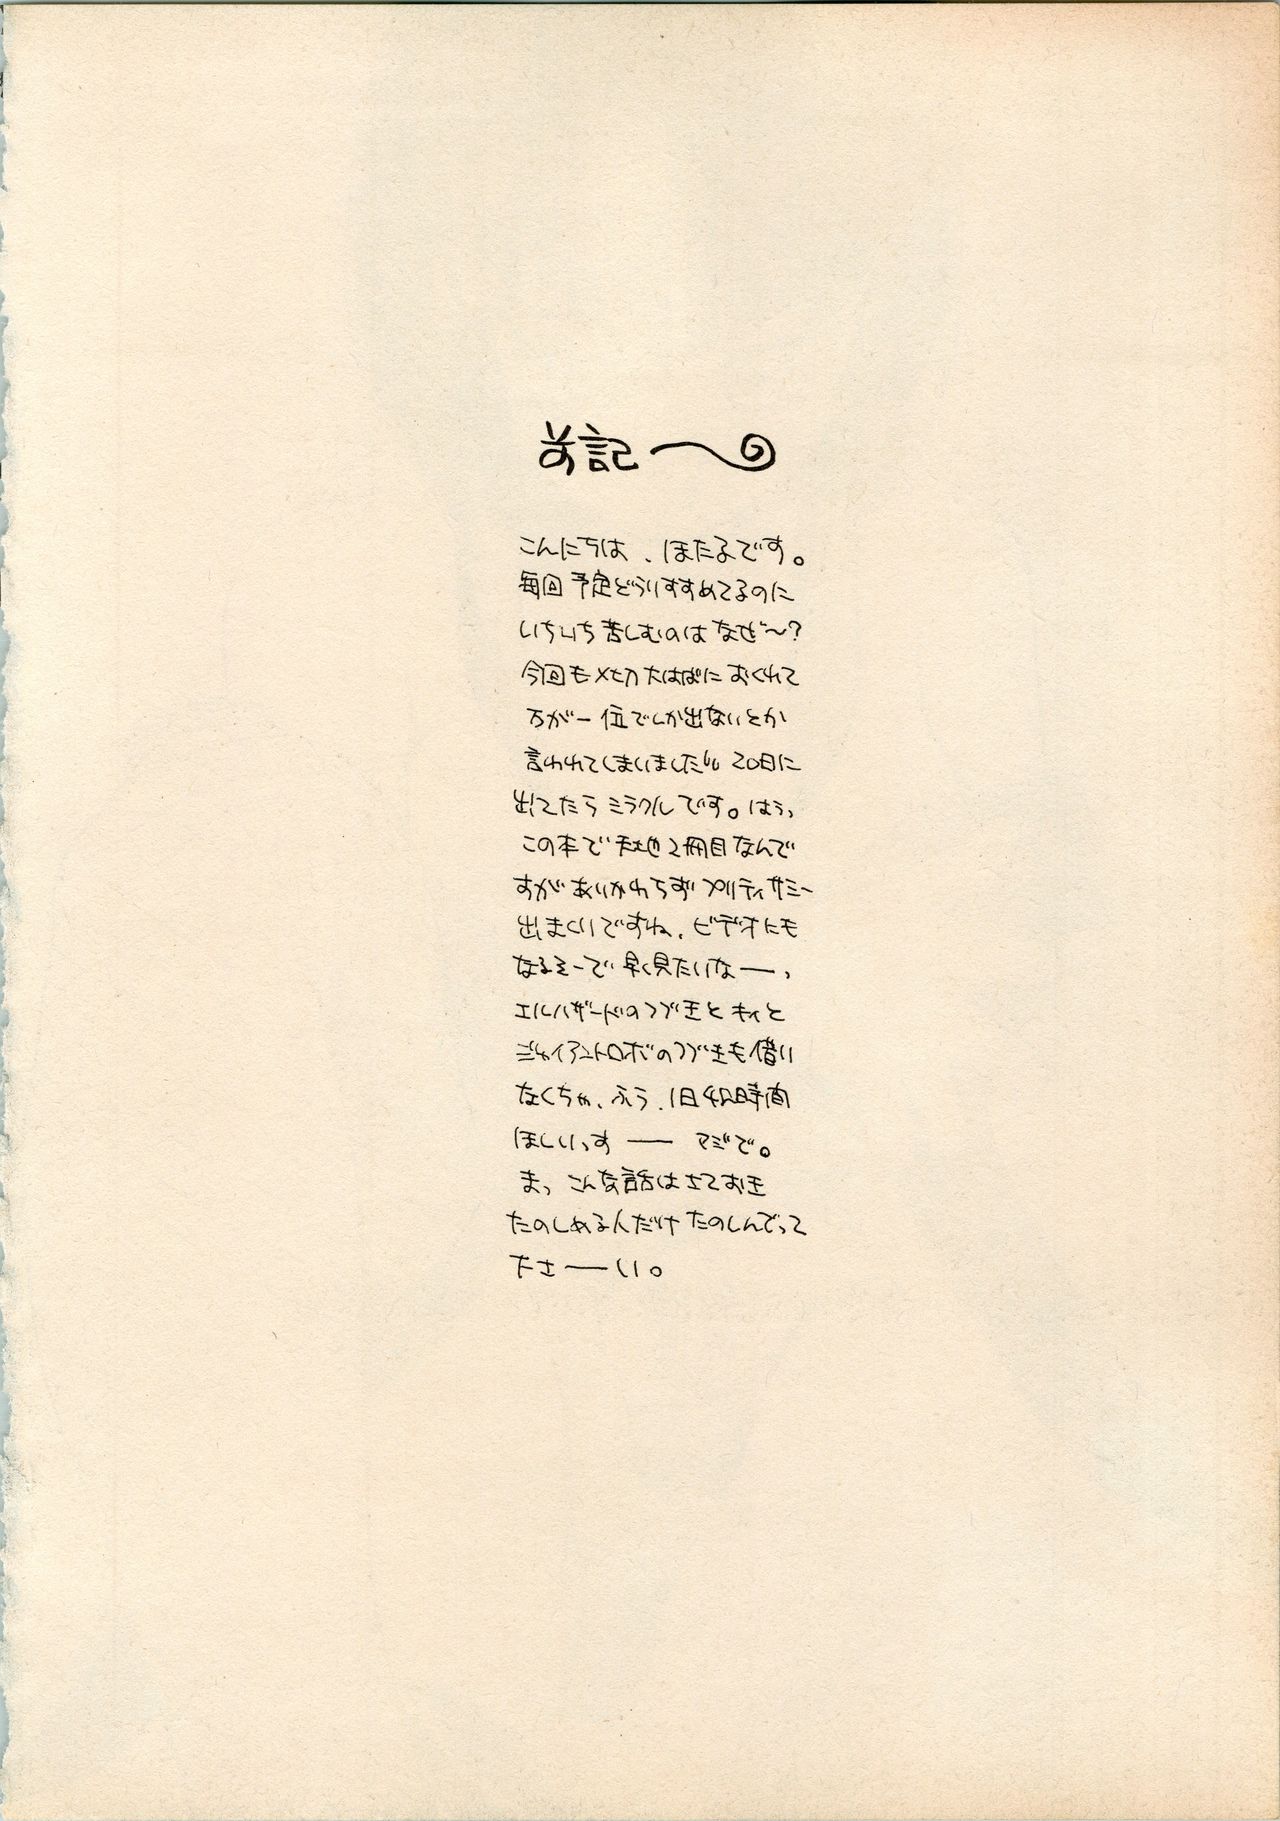 前記〜
こんにちは、ほたるです。
毎回予定どうりすすめてるのに
いちいち苦しむのはなぜ〜?
今回もメ切大はばにおくれて
万が一位でしか出ないとか
言われてしまいました 20日に
出てたらミラクルです。はぅっ
この本で天地2冊目なんで
すがあいかわらずプリティサミー
出まくりですね、ビデオにも
なるそーで早く見たいなーっ
エルハザードのつづきとキィと
ジャイアントロボのつづきも借り
なくちゃ、ふう、1日42時間
ほしいっす── マジで。
まっ こんな話はさておき
たのしめる人だけたのしんでって
たさ──い。